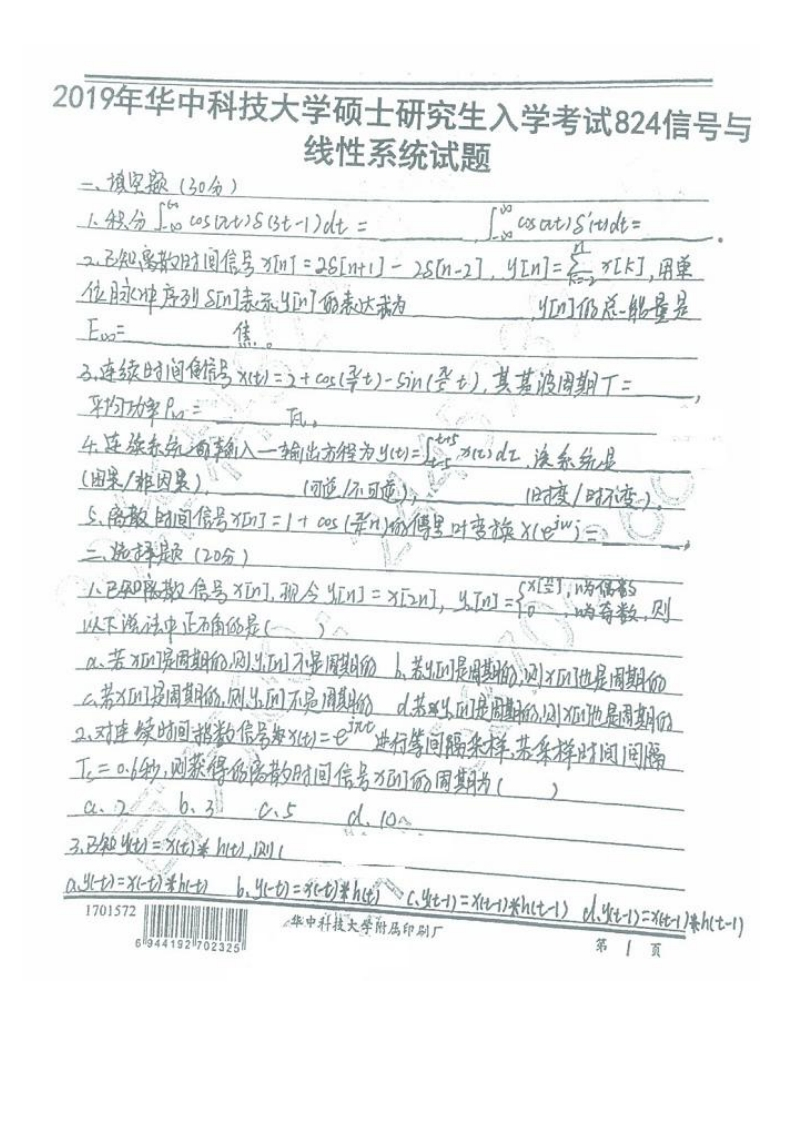 2019年华中科技大学硕士研究生入学考试824信号与
线性系统试题
一、填空题（30分）
1. 积分∫_{-∞}^{∞} cos(πt)δ(3t-1)dt = ________ ∫_{-∞}^{∞} cos(πt)δ'(t)dt= ________。
2. 已知离散时间信号x[n]=2δ[n+1]-2δ[n-2], y[n]=∑_{k=-2}^{n} x[k], 用单
位脉冲序列δ[n]表示y[n]的表达式为________, y[n]的总能量是
E∞=________焦。
3. 连续时间信号x(t)=2+cos( t)-sin( t), 其基波周期T=________,
平均功率P∞=________瓦。
4. 连续系统 输入—输出方程为y(t)=∫_{t-5}^{t+5} x(τ)dτ, 该系统是________
(因果/非因果), ________(可逆/不可逆), ________(时变/时不变)。
5. 离散时间信号x[n]=1+cos( n)的傅里叶变换X(e^{jω})=________,
二、选择题（20分）
1. 已知离散信号x[n], 现令y₁[n]=x[2n], y₂[n]={x[n/2], n为偶数
0, n为奇数, 则
以下说法中正确的是( )
a. 若x[n]是周期的,则y₁[n]不是周期的 b. 若y₁[n]是周期的,则x[n]也是周期的
c. 若x[n]是周期的,则y₂[n]不是周期的 d. 若y₂[n]是周期的,则x[n]也是周期的
2. 对连续时间指数信号x(t)=e^{jπt}进行等间隔采样,若采样时间间隔
Ts=0.6秒,则获得的离散时间信号x[n]的周期为( )
a. 2 b. 3 c. 5 d. 10
3. 已知y(t)=x(t)*h(t),则(
a. y(-t)=x(-t)*h(-t) b. y(-t)=x(-t)*h(t) c. y(t-1)=x(t-1)*h(t-1) d. y(t-1)=x(t-1)*h(t-1)
1701572
6 944192 702325
华中科技大学附属印刷厂
第 1 页